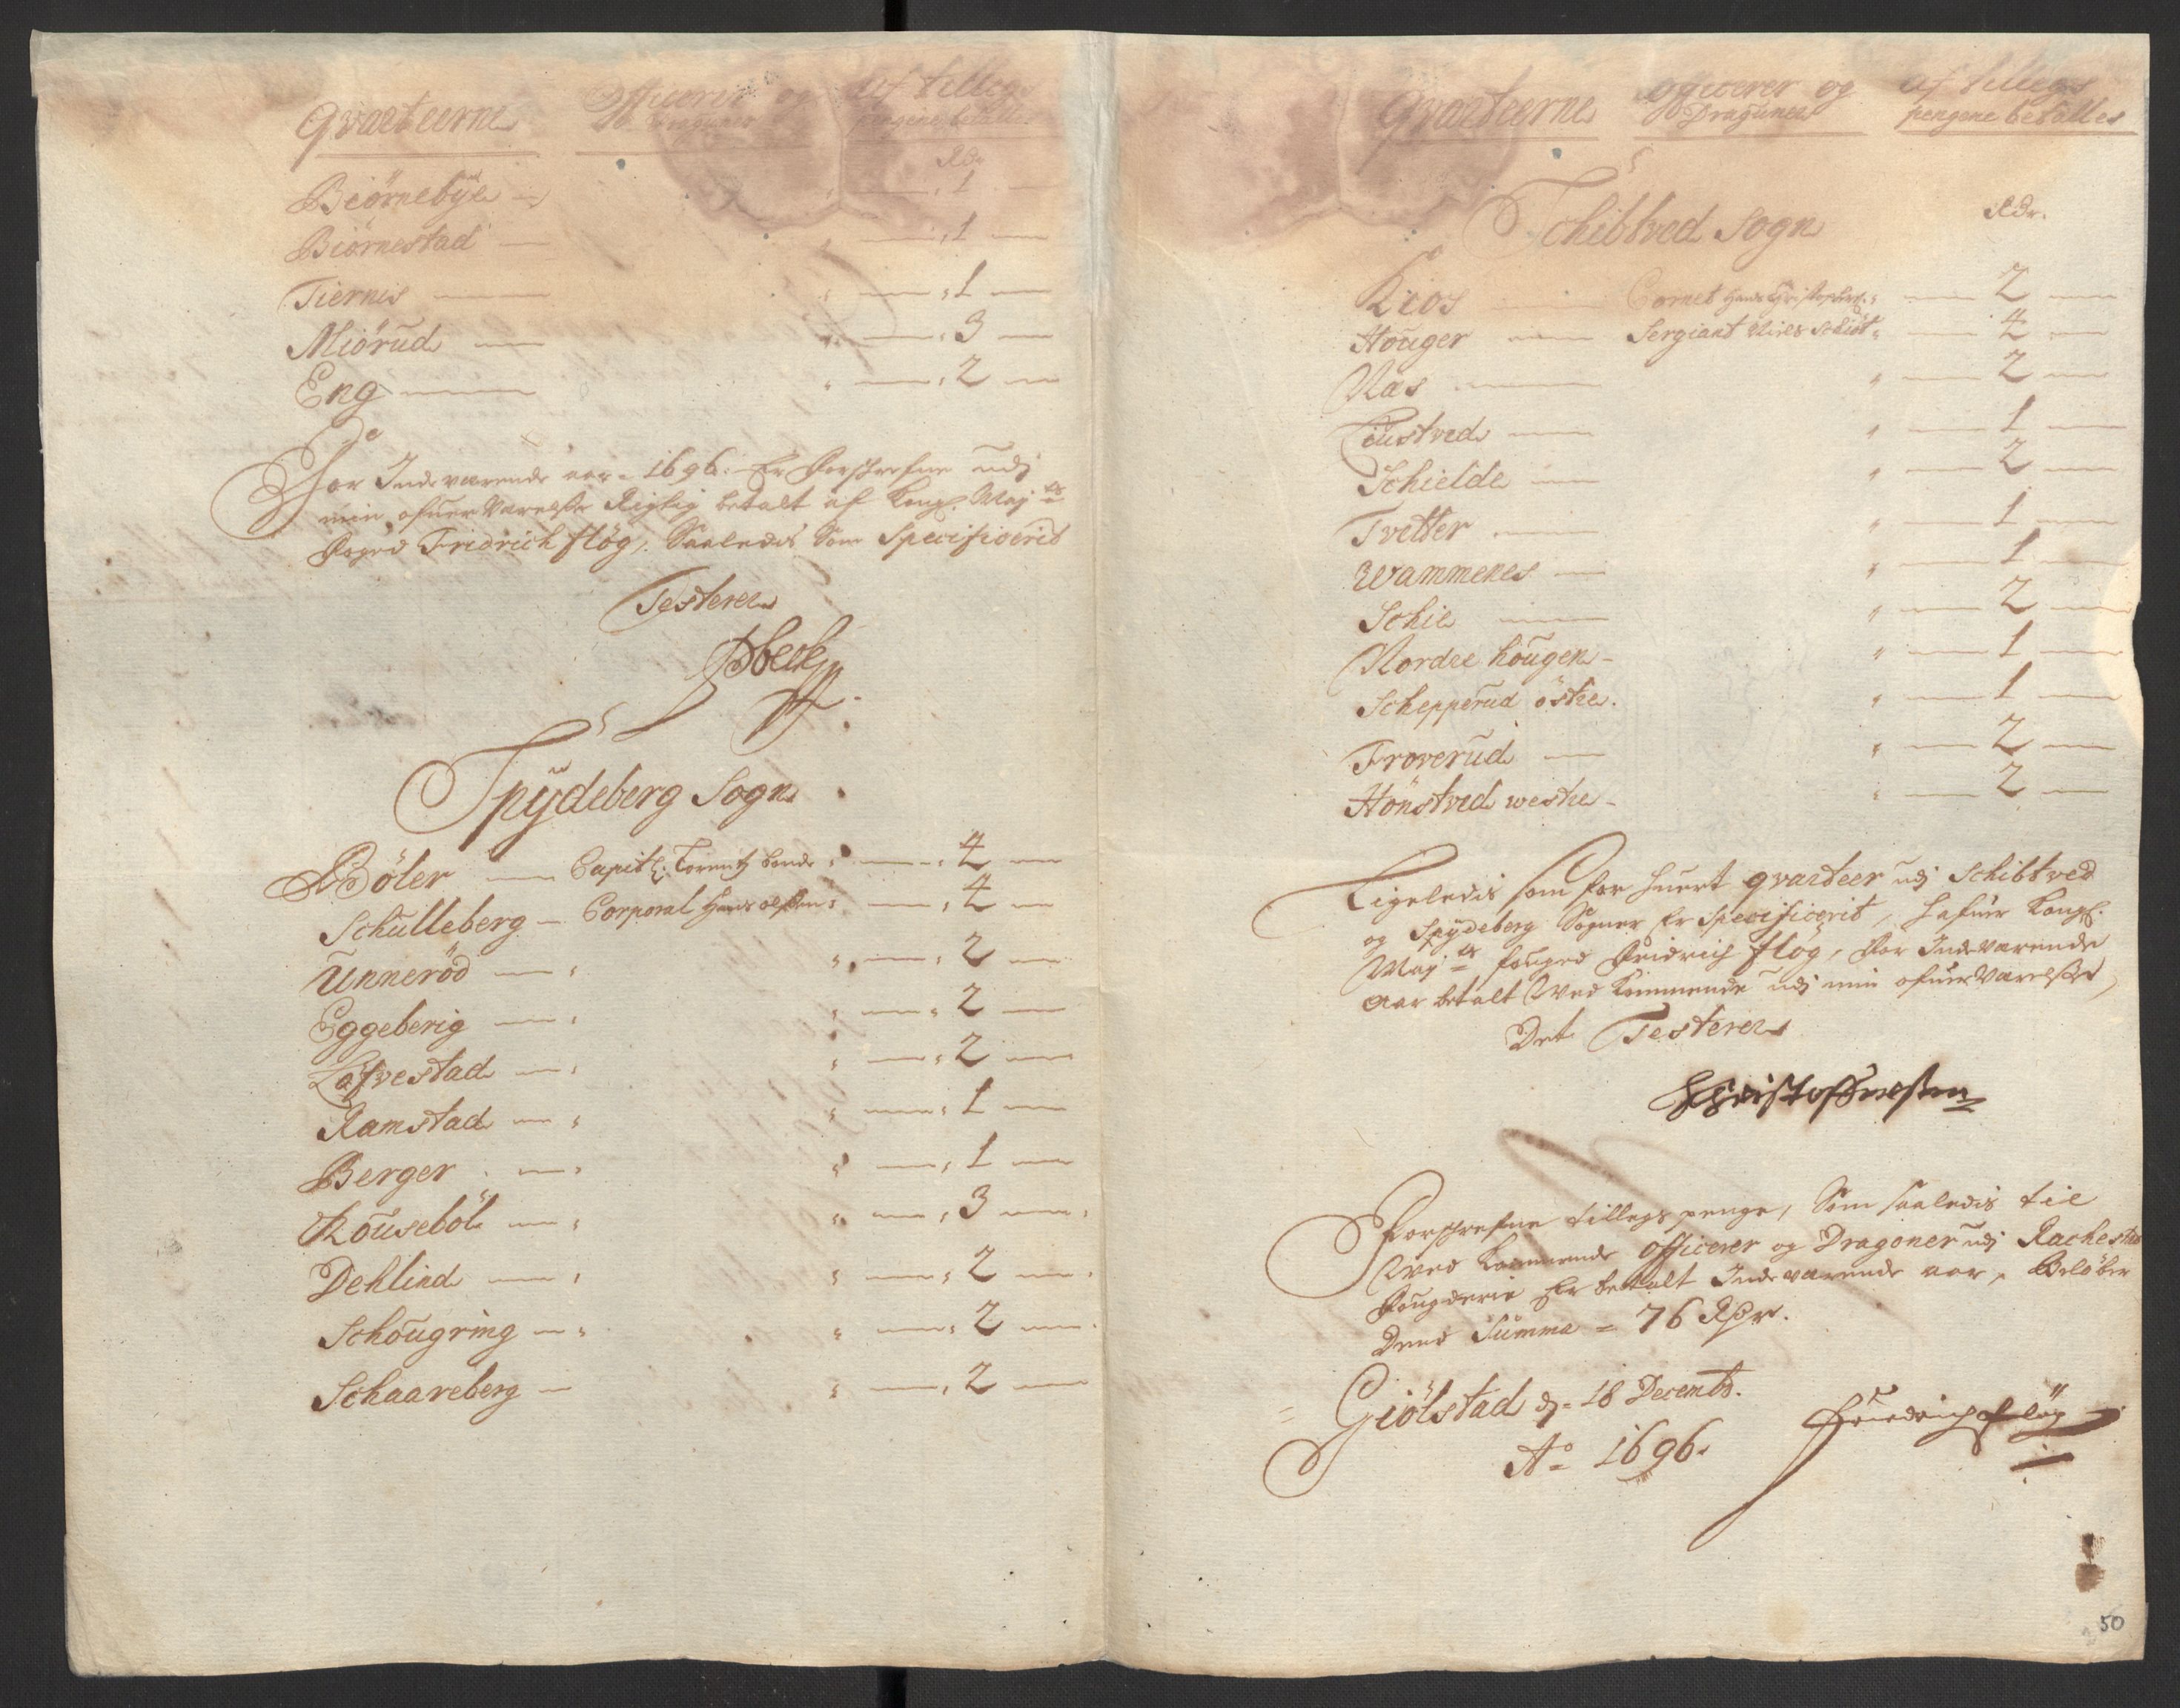 Qvarteerne Officerer og Draguner af tillegs pengene betalles
Rdr
Biörnebÿe 1
Biörnestad 1
Tiernis 1
Miörud 3
Eng 2
For Indeværende aar 1696. Er Forschrefne udj
min ofuerVærelse Rigtig betalt af Kongl. Maÿ ts
Foged Fridrich flög, Saaledis Som Specificerit
Testerer
Spÿdeberg Sogn
Böler Capitl. Lorentz Lande 4
Schulleberg Corporal Hans olsen 4
Unneröd 2
Eggeberig 2
Lofvestad 2
Ramstad 1
Berger 1
Rouseböl 3
Dehlind 2
Schougring 2
Schaareberg 2
Qvarteerne Officerer og Draguner af tillegs pengene betalles
Schibtved Sogn Rdr.
Kios Cornet Hans Christophers. 2
Houger Sergiant Niels Schiöt 4
Næs 2
Tustved 1
Schielde 2
Tvetter 1
Wammenes 1
Schie 2
Nordre hougen 1
Schepperud östre. 1
Froverud 2
Hönstved westre 2
Ligeledis som for huert qvarteer udj Schibtved
og Spÿdeberg Sogner Er Specificerit, hafuer Kongl.
Maÿ ts fouged Fridrich flog, for Indeværende
Aar betalt Ved Kommende udj min ofuerVærelse,
Det Testerer
Christoffersen
Forschrefne tillegs penge, Som saaledis til
Ved Kommende officerer og Dragoner udj Rachestad
Fougderie Er betalt Indeværende aar, Belöber
dend Summa = 76 Rdr.
Giölstad dj = 18 Decembr.
Ao 1696.
Friedrich flög
50